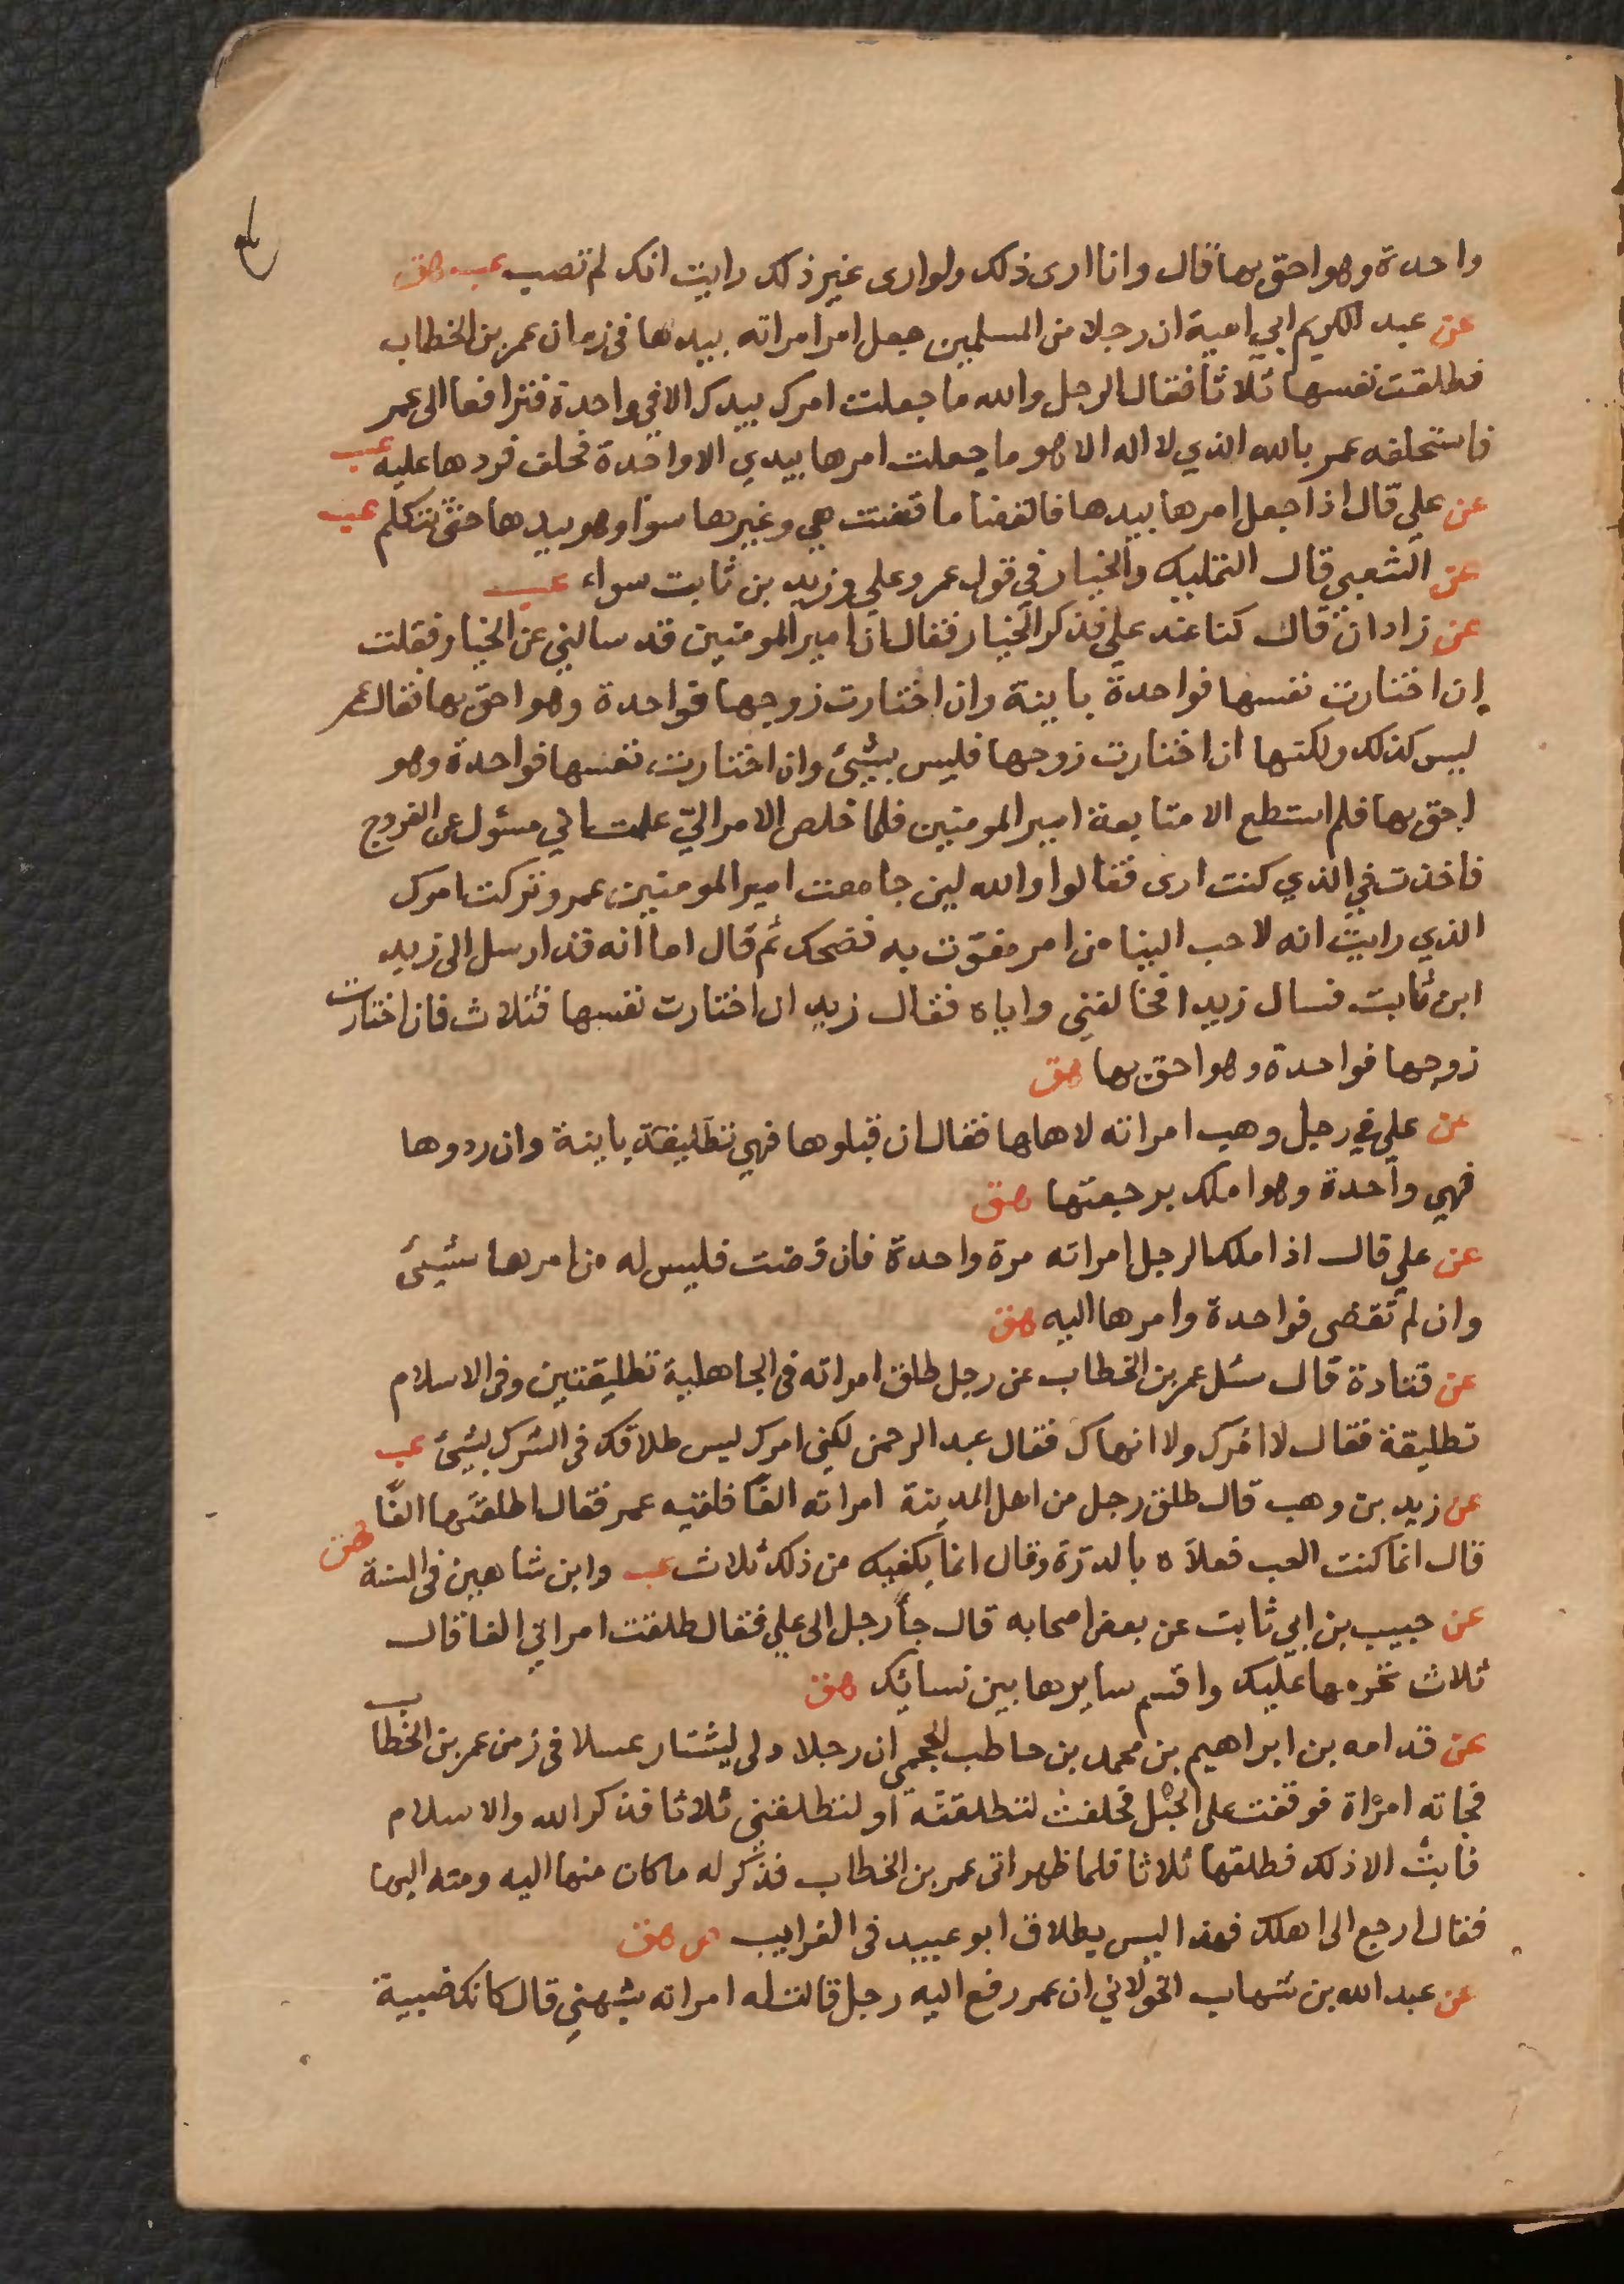 واحدة وهو احق بها قال وانا ارى ذلك ولو ارى غير ذلك رايت انك لم تصب عب هق
عن عبد الكريم ابي امية ان رجلا من المسلمين جعل امر امراته بيدها في زمان عمر بن الخطاب
فطلقت نفسها ثلاثا فقال الرجل والله ما جعلت امرك بيدك الا في واحدة فترافعا الى عمر
فاستحلفه عمر بالله الذي لا اله الا هو ما جعلت امرها بيدي الا واحدة فحلف فردها عليه عب
عن علي قال اذا جعل امرها بيدها فالقضا ما قضت هي وغيرها سوا وهو بيدها حتى تتكلم عب
عن الشعبي قال التمليك والخيار في قول عمر وعلي وزيد بن ثابت سواء عب
عن زادان قال كنا عند علي فذكر الخيار فقال ان امير المومنين قد سالني عن الخيار فقلت
إن اختارت نفسها فواحدة باينة وان اختارت زوجها فواحدة وهو احق بها فقال عمر
ليس كذلك ولكنها ان اختارت زوجها فليس بشيئ وان اختارت نفسها فواحدة وهو
احق بها فلم استطع الا متابعة امير المومنين فلما خلص الامر اليّ علمت اني مسئول عن الفروج
فاخذت في الذي كنت ارى فقالوا والله لين جامعت امير المومنين عمر وتركت امرك
الذي رايت انه لاحب الينا من امر مفوّت به فضحك ثم قال اما انه قد ارسل الى زيد
ابن ثابت فسال زيدا فخالفني واياه فقال زيد ان اختارت نفسها فثلاث فان اختارت
زوجها فواحدة وهو احق بها هق
عن علي في رجل وهب امراته لاهلها فقال ان قبلوها فهي تطليقة باينة وان ردوها
فهي واحدة وهو املك برجعتها هق
عن علي قال اذا ملك الرجل امراته مرة واحدة فان قضت فليس له من امرها شيئ
وان لم تقضى فواحدة وامرها اليه هق
عن قتادة قال سئل عمر بن الخطاب عن رجل طلق امراته في الجاهلية تطليقتين وفي الاسلام
تطليقة فقال لا امرك ولا انهاك فقال عبد الرحمن لكني امرك ليس طلاقك في الشرك بشيئ عب
عن زيد بن وهب قال طلق رجل من اهل المدينة امراته الفًا فلقيه عمر فقال اطلقتها الفًا
قال انما كنت العب فعلاه بالدرّة وقال انما يكفيك من ذلك ثلاث عب وابن شاهين في السنة هق
عن حبيب بن ابي ثابت عن بعض اصحابه قال جأ رجل الى علي فقال طلقت امراتي الفا قال
ثلاث تحرمها عليك واقسم سايرها بين نسائك هق
عن قدامه بن ابراهيم بن محمد بن حاطب الجمحي ان رجلا دلى ليشتار عسلا في زمن عمر بن الخطاب
فجاته امرأة فوقفت على الحبل فحلفت لتطلقنه او لتطلقني ثلاثا فذكر الله والاسلام
فابت الا ذلك فطلقها ثلاثا فلما ظهر اتى عمر بن الخطاب فذكر له ما كان منها اليه ومنه اليها
فقال ارجع الى اهلك فهذا ليس بطلاق ابو عبيد في الغرايب ص هق
عن عبد الله بن شهاب الخولاني ان عمر رفع اليه رجل قالت له امراته شبهني قال كانك ضبية